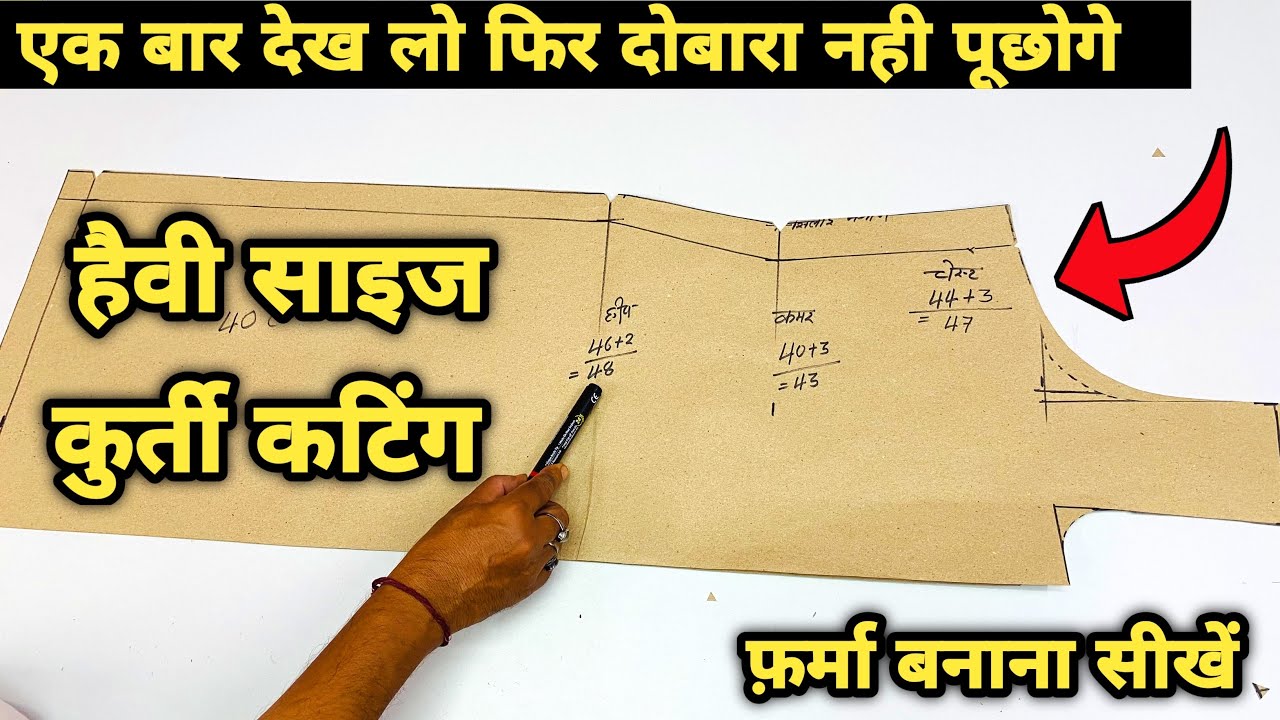 एक बार देख लो फिर दोबारा नही पूछोगे
हैवी साइज
कुर्ती कटिंग
40
हीप
46+2
= 48
कमर
40+3
= 43
चेस्ट
44+3
= 47
फ़र्मा बनाना सीखें